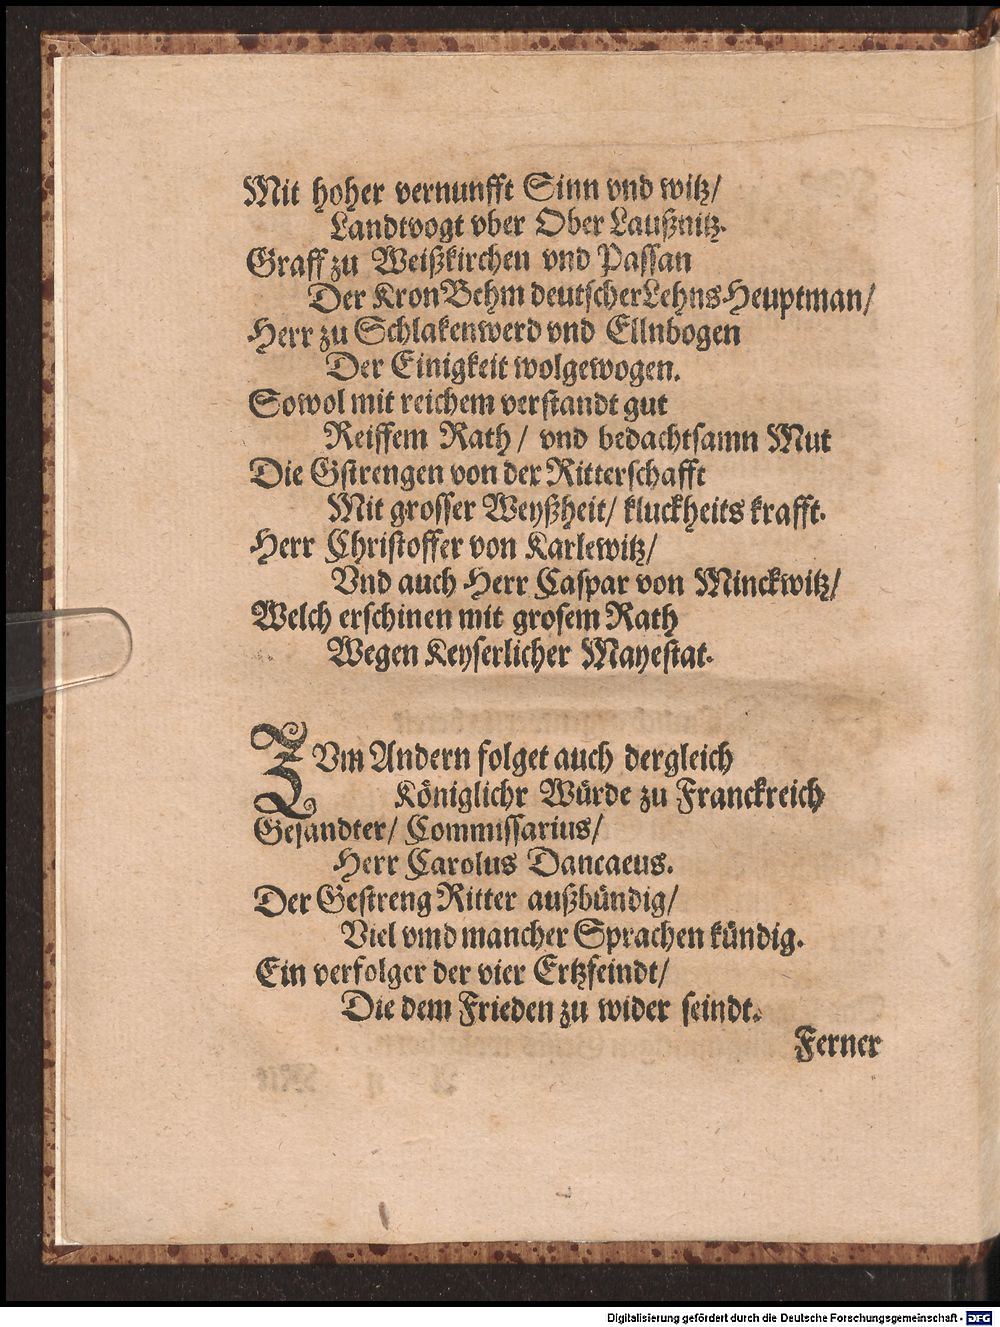 Mit hoher vernunfft Sinn vnd witz/
Landtvogt vber Ober Laußnitz.
Graff zu Weißkirchen vnd Passan
Der Kron Behm deutscher Lehns Heuptman/
Herr zu Schlakenwerd vnd Ellnbogen
Der Einigkeit wolgewogen.
Sowol mit reichem verstandt gut
Reiffem Rath/ vnd bedachtsamn Mut
Die Gstrengen von der Ritterschafft
Mit grosser Weyßheit/ kluckheits krafft.
Herr Christoffer von Karlewitz/
Vnd auch Herr Caspar von Minckwitz/
Welch erschinen mit grosem Rath
Wegen Keyserlicher Mayestat.
ZVm Andern folget auch dergleich
Königlichr Würde zu Franckreich
Gesandter/ Commissarius/
Herr Carolus Dancaeus.
Der Gestreng Ritter außbündig/
Viel vnnd mancher Sprachen kündig.
Ein verfolger der vier Ertzfeindt/
Die dem Frieden zu wider seindt.
Ferner
Digitalisierung gefördert durch die Deutsche Forschungsgemeinschaft - DFG